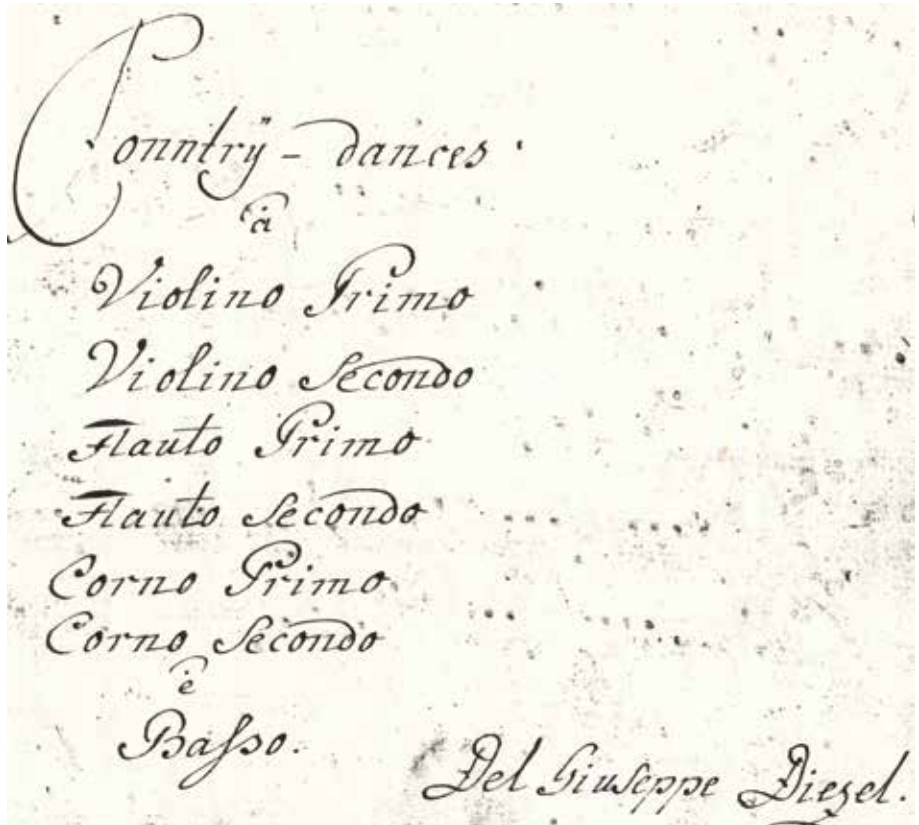 Conntrÿ - dances
à
Violino Primo
Violino Secondo
Flauto Primo
Flauto Secondo
Corno Primo
Corno Secondo
è
Baſso.
Del Giuseppe Diezel.